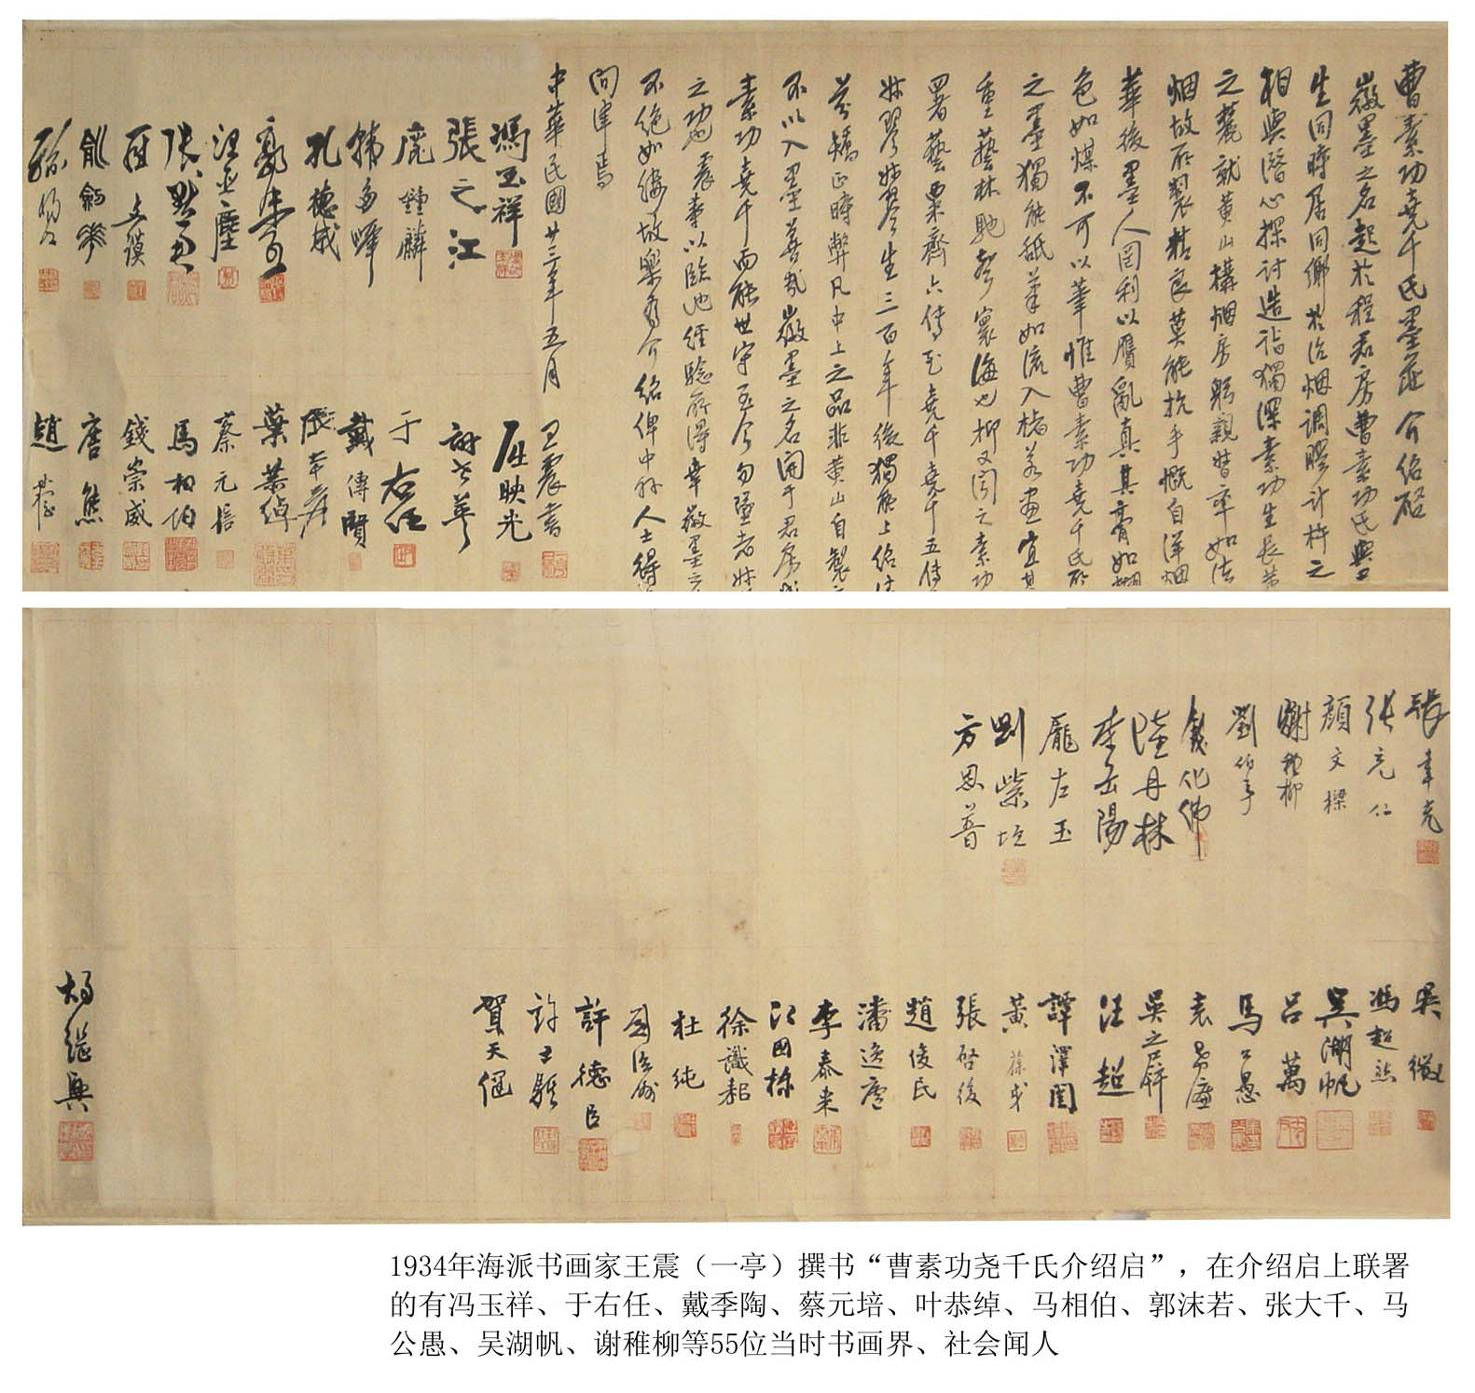 曹素功堯千氏墨莊介紹啓
徽墨之名起於程君房曹素功氏與
生同時居同鄉於治烟調膠計杵之
相與潛心探討造詣獨深素功生長黃
之麓就黃山構烟房躬親督率如法
烟故所製精良莫能抗手慨自洋烟
華後墨人罔利以贋亂真其膏如糊
色如煤不可以筆惟曹素功堯千氏所
之墨獨能舐筆如流入楮若畫宜其
重藝林馳聲寰海也抑又聞之素功
署藝粟齋六傳至堯千堯千五傳
生三百年後獨能上紹
芬矯正時弊凡中上之品非黃山自製
不以入墨善哉徽墨之名開于君房
素功堯千而能世守至今勿墜者
之功也震素以臨池經驗所得幸徽墨之
不絕如縷故樂為介紹俾中外人士得
問津焉
中華民國廿三年五月
王震書
馮玉祥
張之江
鹿鍾麟
韓多峰
孔德成
汪亞塵
張默君
俞劍華
屈映光
于右任
戴傳賢
葉恭綽
蔡元培
馬相伯
錢崇威
唐熊
張聿光
張充仁
顏文樑
謝稚柳
劉伯年
錢化佛
陸丹林
李岳陽
龐左玉
劉紫垣
方恩普
吳徵
馮超然
吳湖帆
呂萬
馬公愚
吳之屏
汪超
譚澤闓
黃葆戉
張啓後
趙俊民
潘逸廬
李泰來
江國棟
徐識耜
杜純
許德臣
許士騏
賀天健
楊繼興
1934年海派书画家王震（一亭）撰书“曹素功尧千氏介绍启”，在介绍启上联署
的有冯玉祥、于右任、戴季陶、蔡元培、叶恭绰、马相伯、郭沫若、张大千、马
公愚、吴湖帆、谢稚柳等55位当时书画界、社会闻人